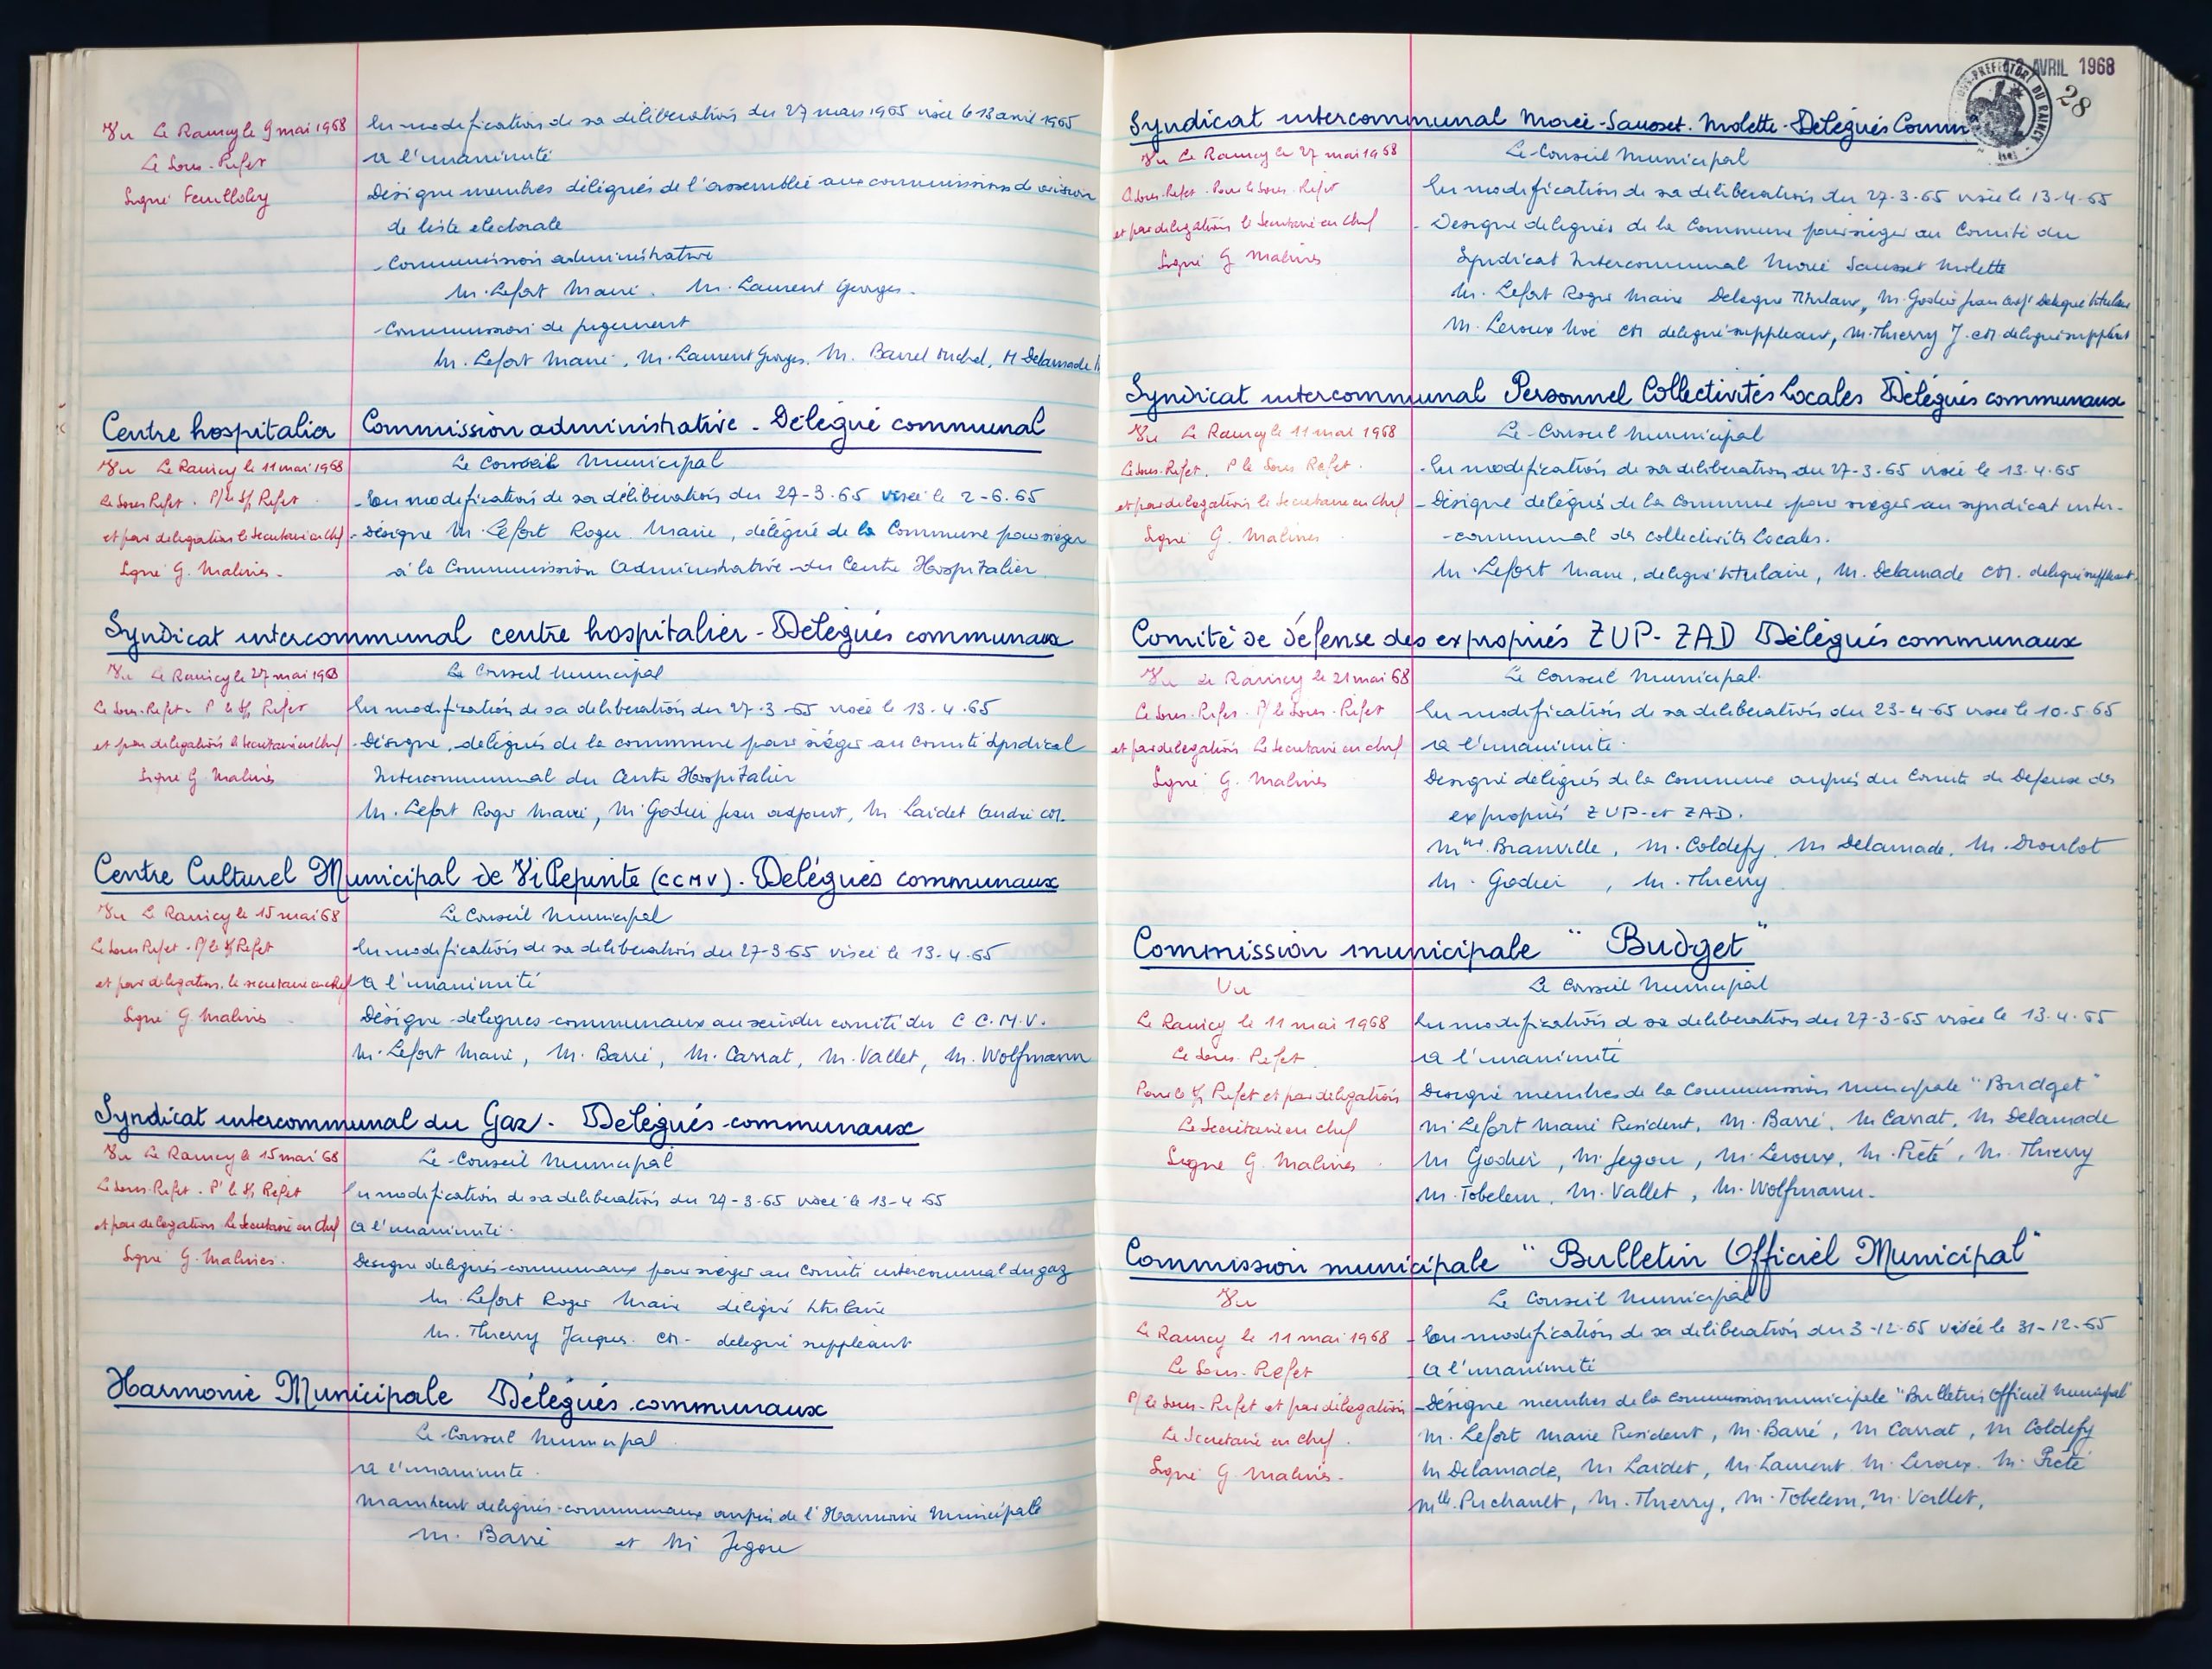 Vu Le Raincy le 9 mai 1968
Le Sous-Prefet
Signé Feuilloley
En modification de sa délibération du 27 mars 1965 visée le 13 avril 1965
a l'unanimité
Désigne membres délégués de l'assemblée aux commissions de révision
de liste electorale
- Commission administrative
M. Lefort Maire. M. Laurent Georges.
- Commission de jugement
M. Lefort Maire, M. Laurent Georges, M. Barrel Michel, M Delamade
Centre hospitalier Commission administrative - Délégué communal
Vu Le Raincy le 11 mai 1968
Le Sous Prefet. P/ le S/ Prefet
et par delegation le Secretaire en Chef
Signé G. Malinès.
Le Conseil Municipal
- En modification de sa délibération du 27-3.65 visée le 2-6.65
- Désigne M. Lefort Roger Maire, délégué de la Commune pour siéger
à la Commission Administrative du Centre Hospitalier
Syndicat intercommunal centre hospitalier - Délégués communaux
Vu Le Raincy le 27 mai 1968
Le Sous-Prefet. P le S/ Prefet
et par delegation le Secretaire en Chef
Signé G. Malinès
Le Conseil Municipal
En modification de sa deliberation du 27.3-65 visée le 13.4.65
- Désigne, délégués de la commune pour siéger au comité Syndical
Intercommunal du Centre Hospitalier
M. Lefort Roger Maire, M Godier Jean adjoint, M Laidet André CM.
Centre Culturel Municipal de Villepinte (CCMV). Délégués communaux
Vu Le Raincy le 15 mai 68
Le Sous Prefet - P/ le S/ Prefet
et par delegation, le secretaire en chef
Signé G. Malinès
Le Conseil Municipal
En modification de sa deliberation du 27-3-65 visée le 13.4.65
A l'unanimité
Désigne délégués communaux au sein du comité du C C.M.V.
M. Lefort Maire, M. Barré, M. Carrat, M. Vallet, M. Wolfmann
Syndicat intercommunal du Gaz. Délégués communaux
Vu Le Raincy le 15 mai 68
Le Sous-Prefet. P' le S/ Prefet
et par delegation Le Secretaire en Chef
Signé G. Malinès.
Le Conseil Municipal
En modification de sa deliberation du 27-3-65 visée le 13-4 65
A l'unanimité.
Désigne délégués communaux pour siéger au Comité intercommunal du gaz
M. Lefort Roger Maire délégué titulaire
M. Thierry Jacques. CM - delegué suppléant
Harmonie Municipale Délégués communaux
Le Conseil Municipal
A l'unanimité.
Maintient délégués communaux auprès de l'Harmonie Municipale
M. Barré et M Jegou
AVRIL 1968
SOUS-PREFECTURE DU RAINCY
28
Syndicat intercommunal Morée-Sausset. Molette - Délégués Comm
Vu Le Raincy le 27 mai 1968
Le Sous-Prefet. Pour le Sous-Prefet
et par delegation le Secretaire en Chef
Signé G Malinès
Le Conseil Municipal
En modification de sa deliberation du 27-3.65 visée le 13-4-65
- Designe delegués de la Commune pour siéger au Comité du
Syndicat Intercommunal Morée Sausset Molette
M. Lefort Roger Maire Delegué Titulaire, M. Godier Jean adj Delegué titulaire
M. Leroux Noé CM delegué suppleant, M. Thierry J. CM delegué suppléant
Syndicat intercommunal Personnel Collectivités Locales Délégués communaux
Vu Le Raincy le 11 mai 1968
Le Sous-Prefet. P le Sous Prefet.
et par delegation le Secretaire en Chef
Signé G. Malinès
Le Conseil Municipal
- En modification de sa deliberation du 27-3.65 visée le 13.4.65
- Désigne délégués de la Commune pour siéger au syndicat inter-
-communal des collectivités Locales.
M. Lefort Maire, delegué titulaire, M. Delamade CM. delegué suppleant
Comité de défense des expropriés ZUP-ZAD Délégués communaux
Vu Le Raincy le 21 mai 68
Le Sous-Prefet - P/ le Sous-Préfet
et par delegation Le Secretaire en Chef
Signé G. Malinès
Le Conseil Municipal.
En modification de sa deliberation du 23-4-65 visée le 10.5.65
A l'unanimité.
Designe délégués de la Commune auprès du Comité de Defense des
expropriés ZUP-et ZAD.
Mme. Branville, M. Coldefy, M Delamade, M. Droulot
M. Godier, M. Thierry
Commission municipale "Budget"
Vu
Le Raincy le 11 mai 1968
Le Sous-Préfet
Pour le S/ Prefet et par délégation
Le Secrétaire en Chef
Signé G. Malinès
Le Conseil Municipal
En modification d sa deliberation du 27-3-65 visée le 13.4.65
A l'unanimité
Designe membres de la Commission municipale "Budget"
M Lefort Maire President, M. Barré, M Carrat, M Delamade
M Godier, M. Jegou, M. Leroux, M. Piété, M. Thierry
M. Tobelem, M. Vallet, M. Wolfmann.
Commission municipale "Bulletin Officiel Municipal"
Vu
Le Raincy le 11 mai 1968
Le Sous-Prefet
P/ le Sous-Prefet et par délégation
Le Secretaire en Chef.
Signé G. Malinès.
Le Conseil Municipal
- En modification de sa deliberation du 3-12-65 visée le 31-12-65
A l'unanimité
- Désigne membres de la commission municipale "Bulletin Officiel Municipal"
M. Lefort Maire President, M. Barré, M Carrat, M Coldefy
M Delamade, M Laidet, M. Laurent M. Leroux. M. Piété
Mlle. Puchault, M. Thierry, M. Tobelem, M. Vallet,